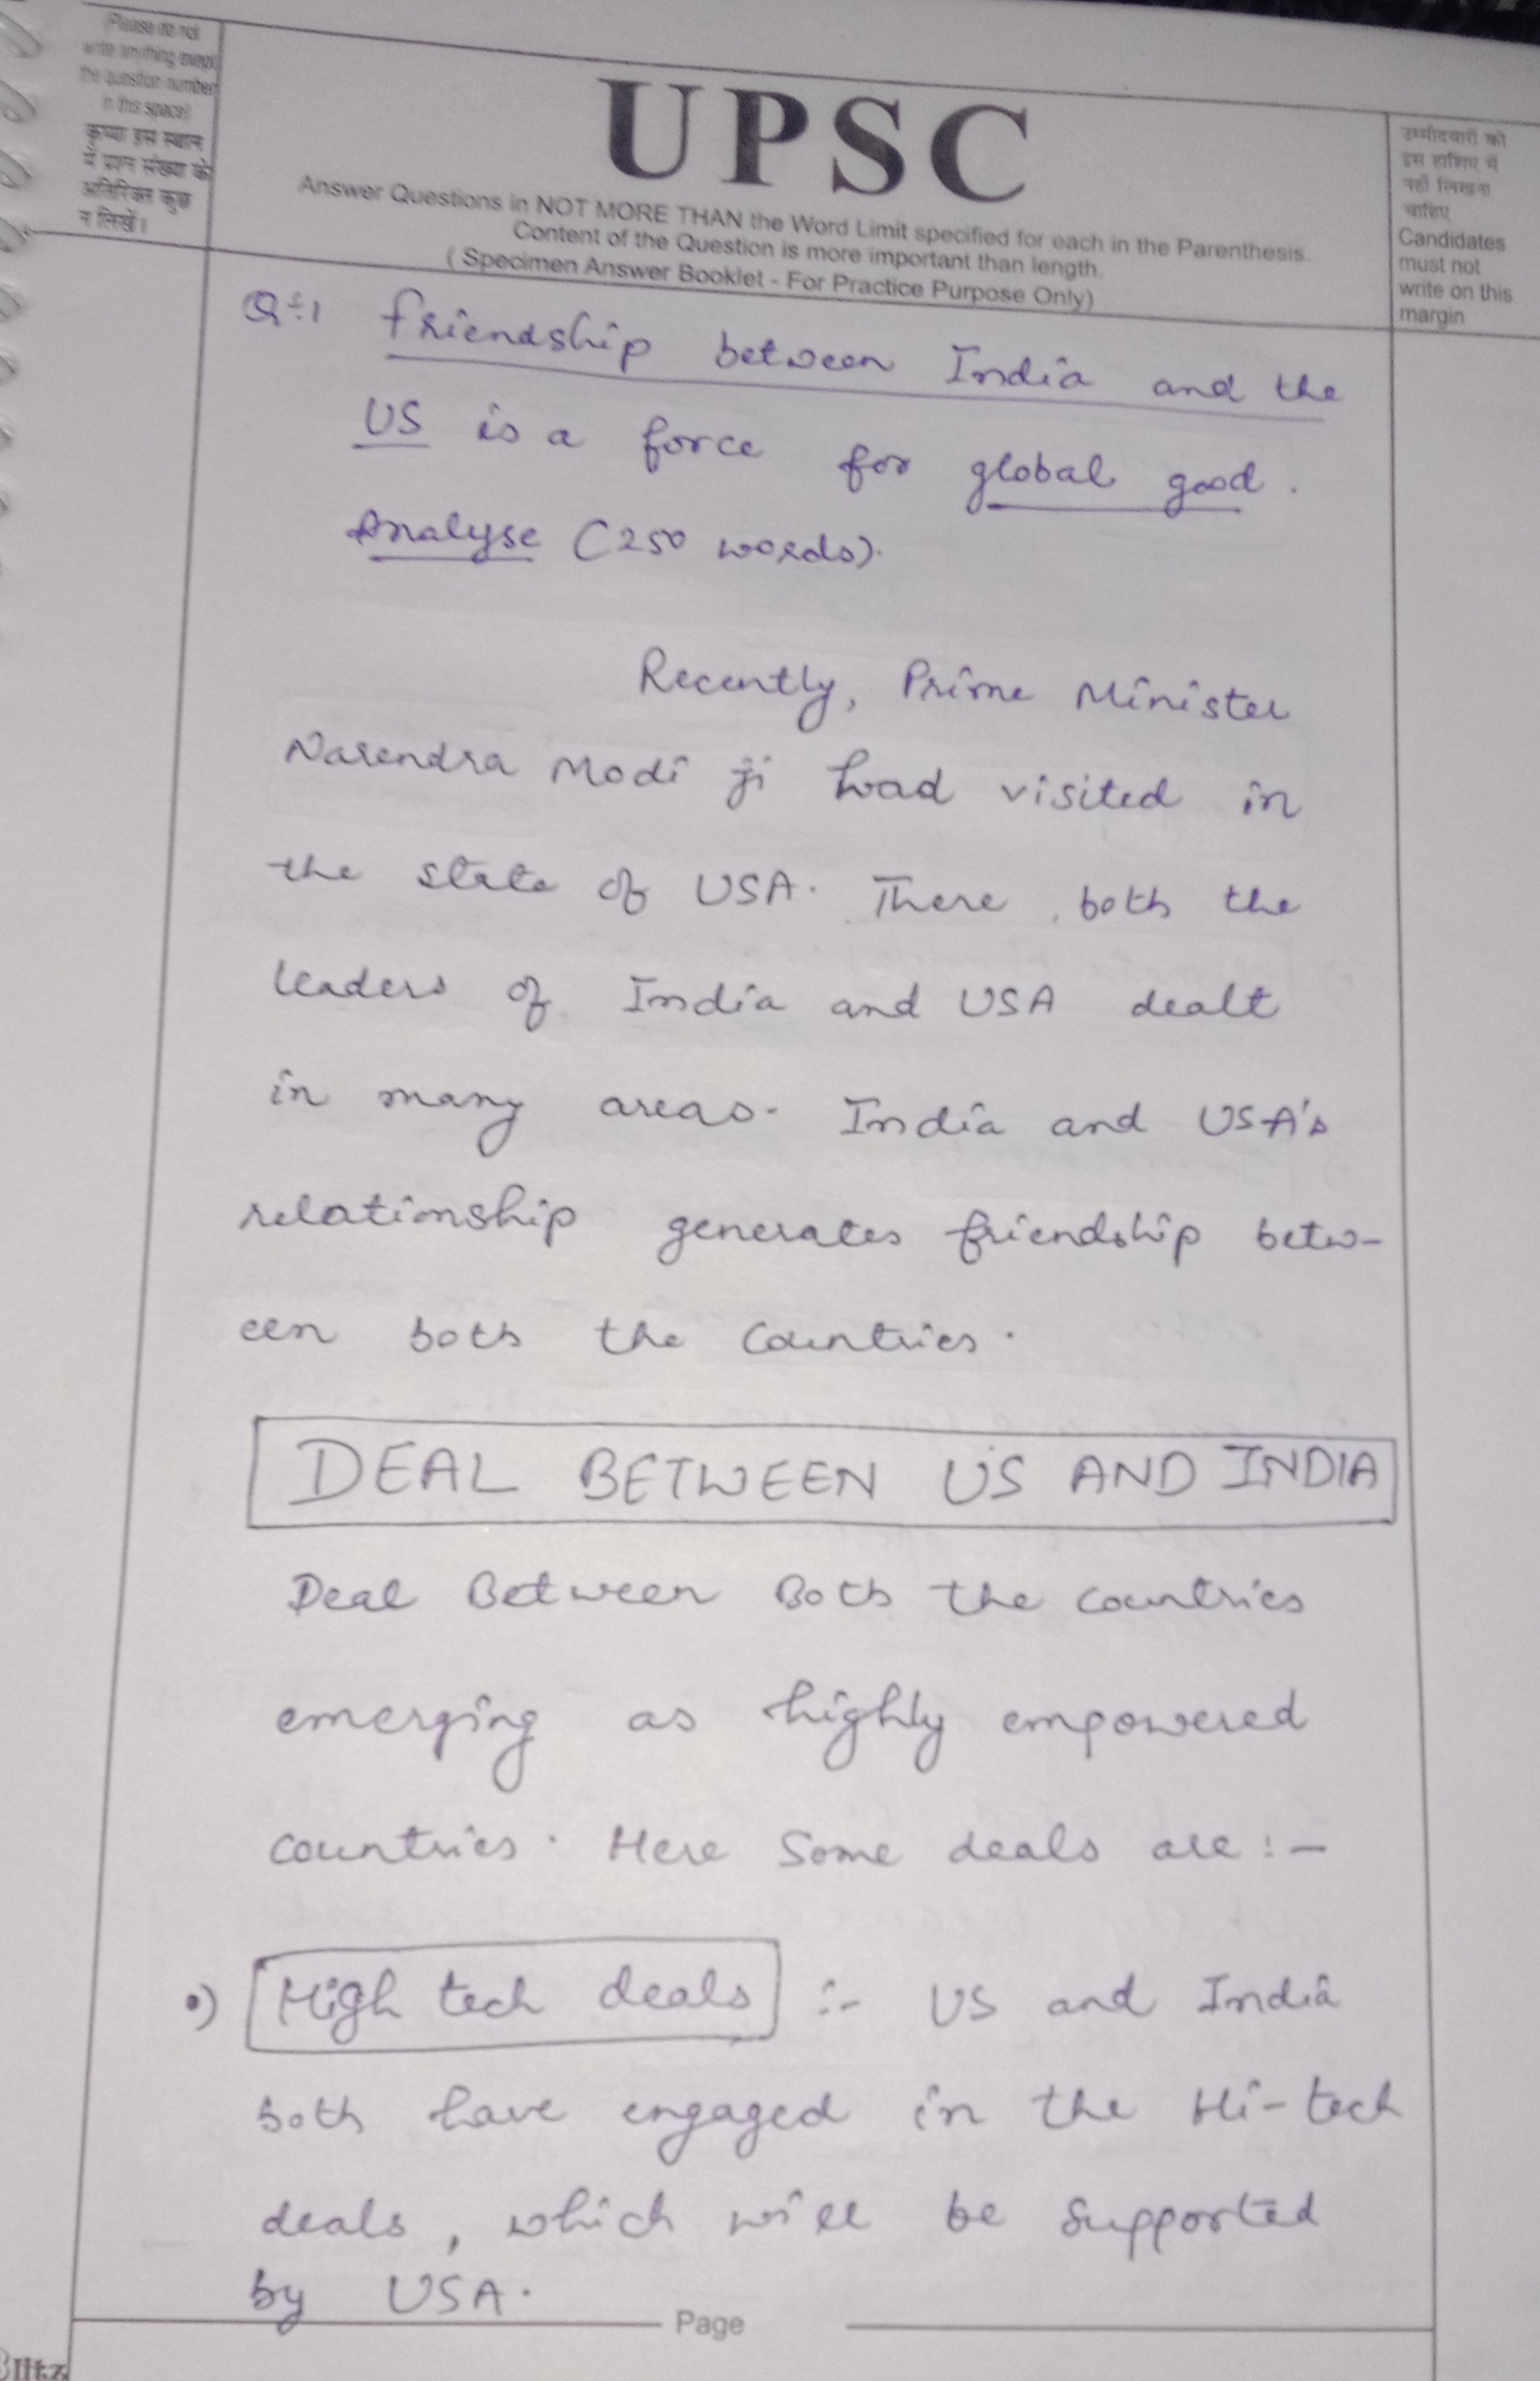 (Please do not
write anything except
the question number
in this space)
कृप्या इस स्थान
में प्रश्न संख्या के
अतिरिक्त कुछ
न लिखें।
UPSC
Answer Questions in NOT MORE THAN the Word Limit specified for each in the Parenthesis.
Content of the Question is more important than length.
( Specimen Answer Booklet - For Practice Purpose Only)
उम्मीदवारों को
इस हाशिए में
नहीं लिखना
चाहिए
Candidates
must not
write on this
margin
Q:1 friendship between India and the
US is a force for global good.
Analyse (250 words).
Recently, Prime Minister
Narendra Modi ji had visited in
the state of USA. There, both the
leaders of India and USA dealt
in many areas. India and USA's
relationship generates friendship betw-
een both the countries.
DEAL BETWEEN US AND INDIA
Deal Between Both the countries
emerging as highly empowered
countries. Here Some deals are :-
•) High tech deals :- US and India
both have engaged in the Hi-tech
deals, which will be supported
by USA.
Page